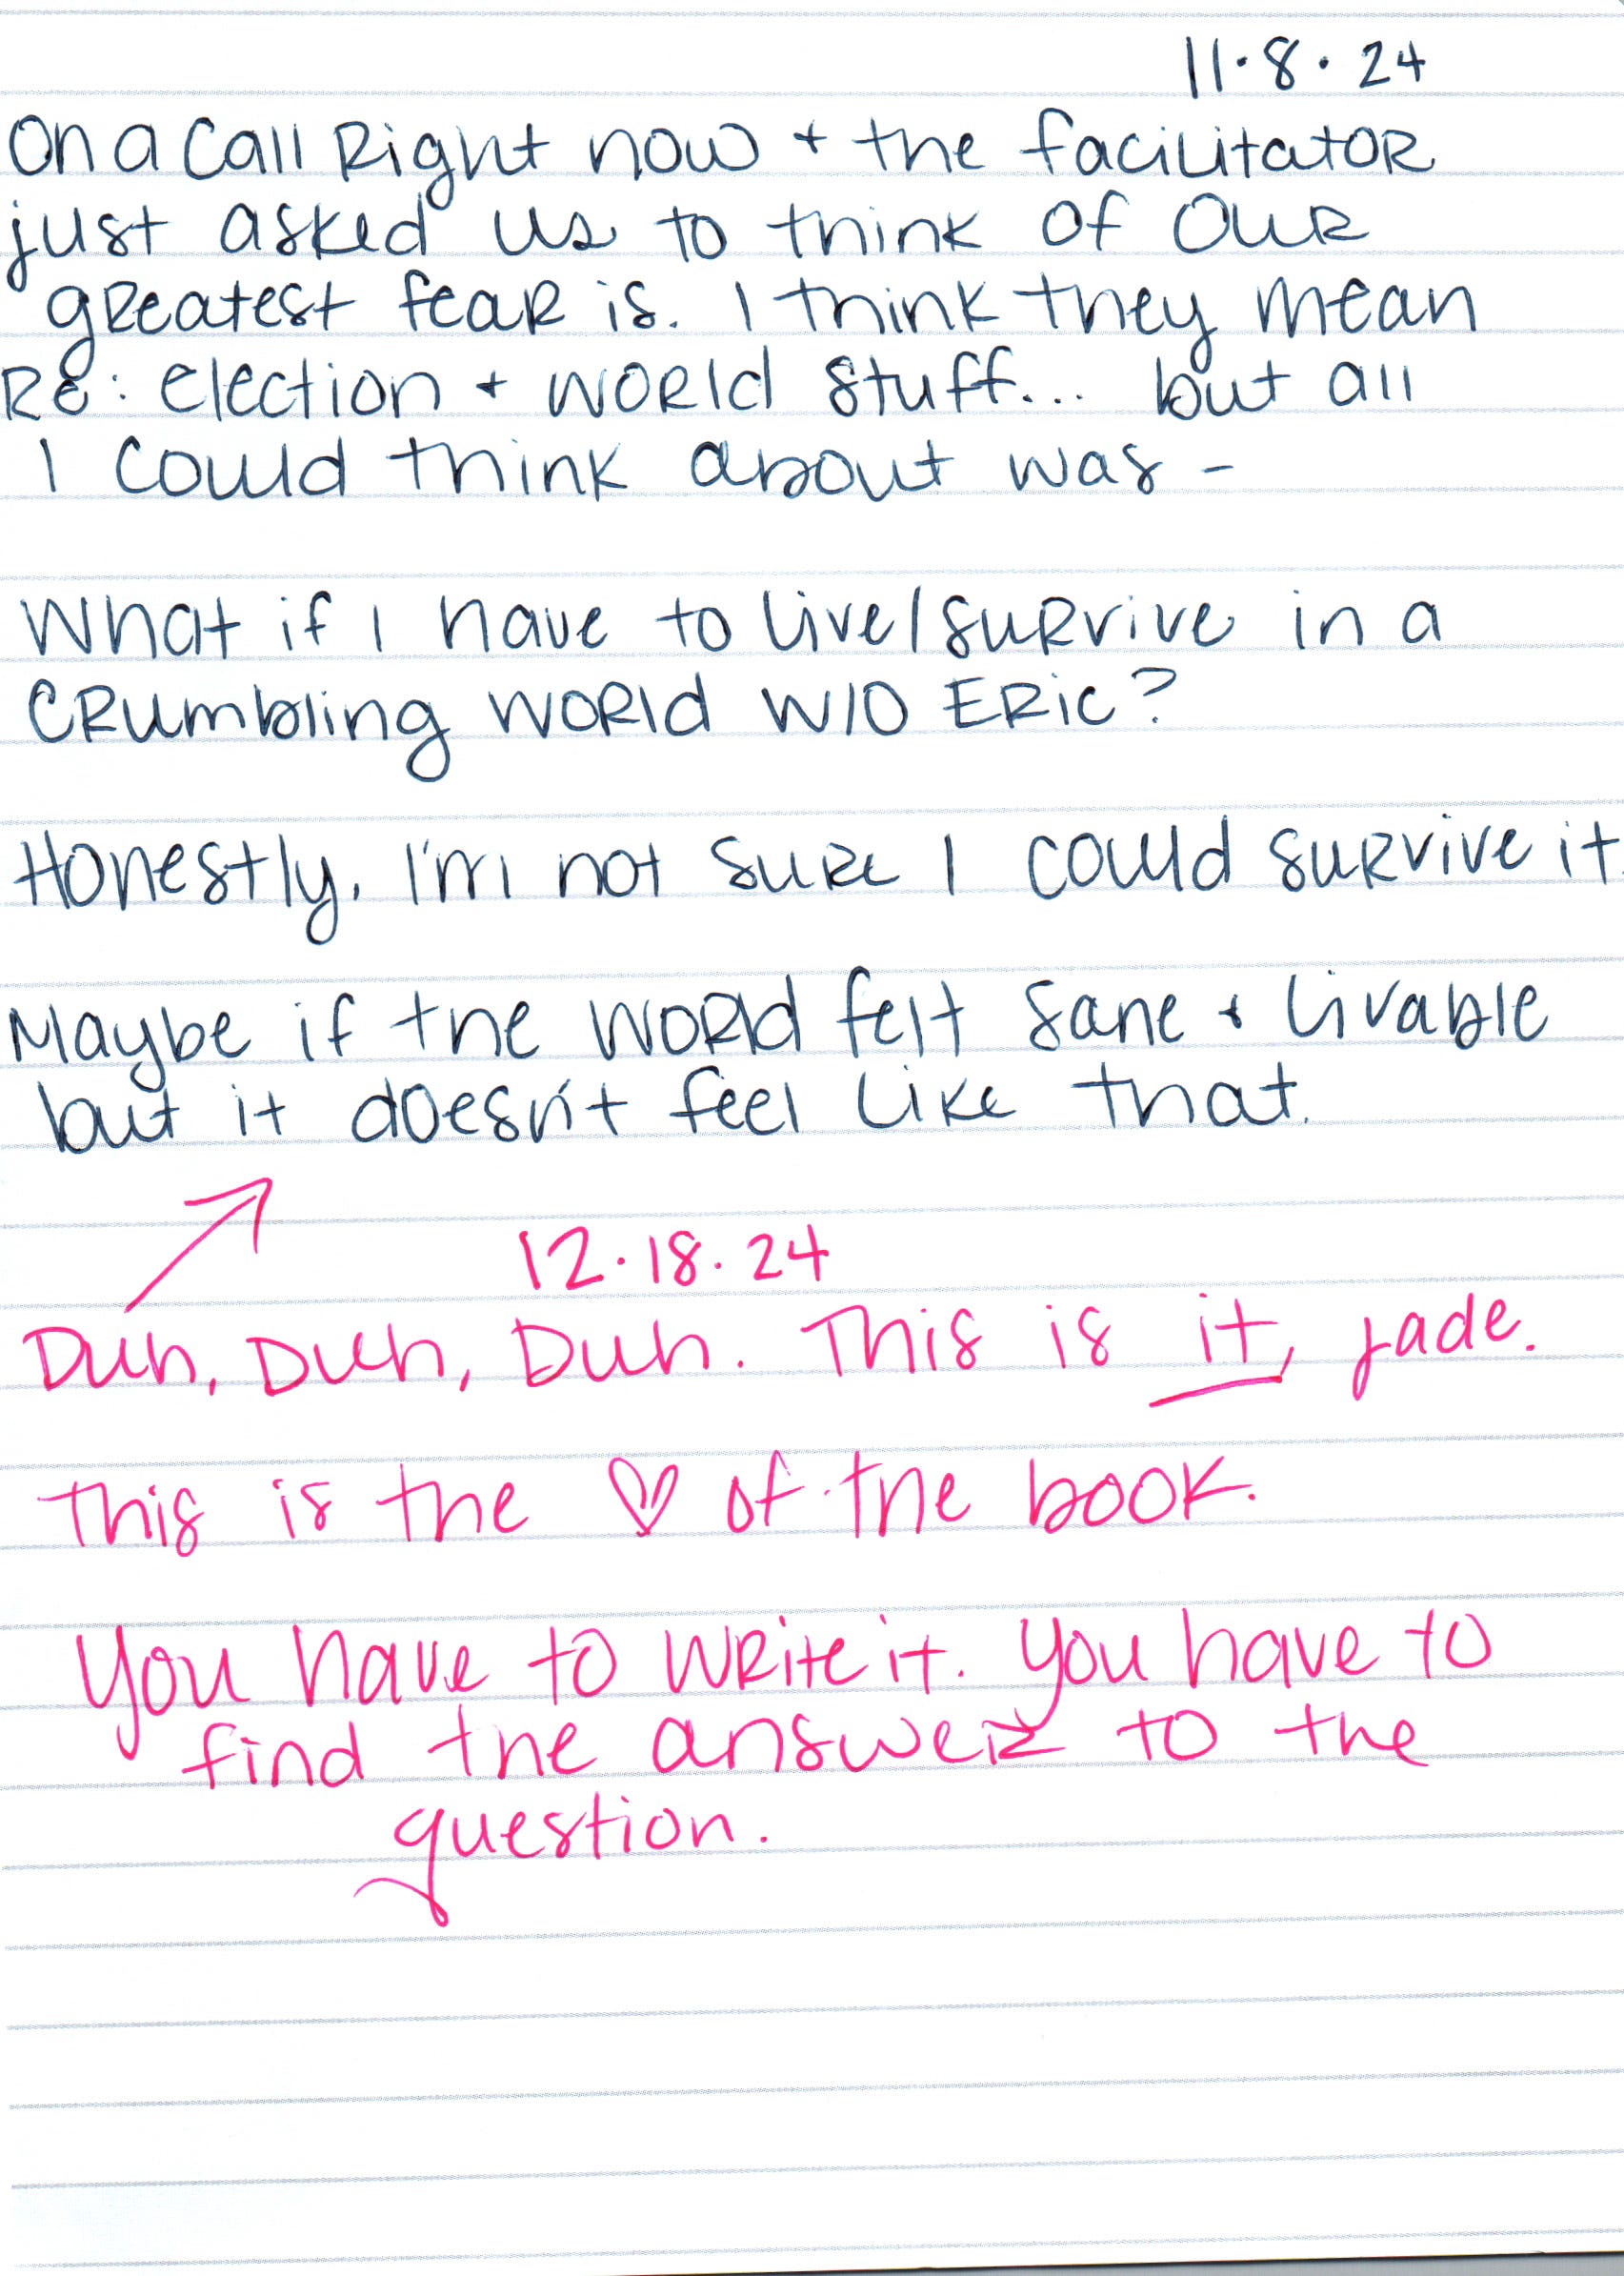 11.8.24
On a call right now + the facilitator
just asked us to think of our
greatest fear is. I think they mean
Re: election + world stuff... but all
I could think about was -
What if I have to live/survive in a
crumbling world w/o Eric?
Honestly, I'm not sure I could survive it.
Maybe if the world felt sane + livable
but it doesn't feel like that.
12.18.24
Duh, Duh, Duh. This is it, jade.
This is the ♡ of the book.
You have to write it. You have to
find the answer to the
question.